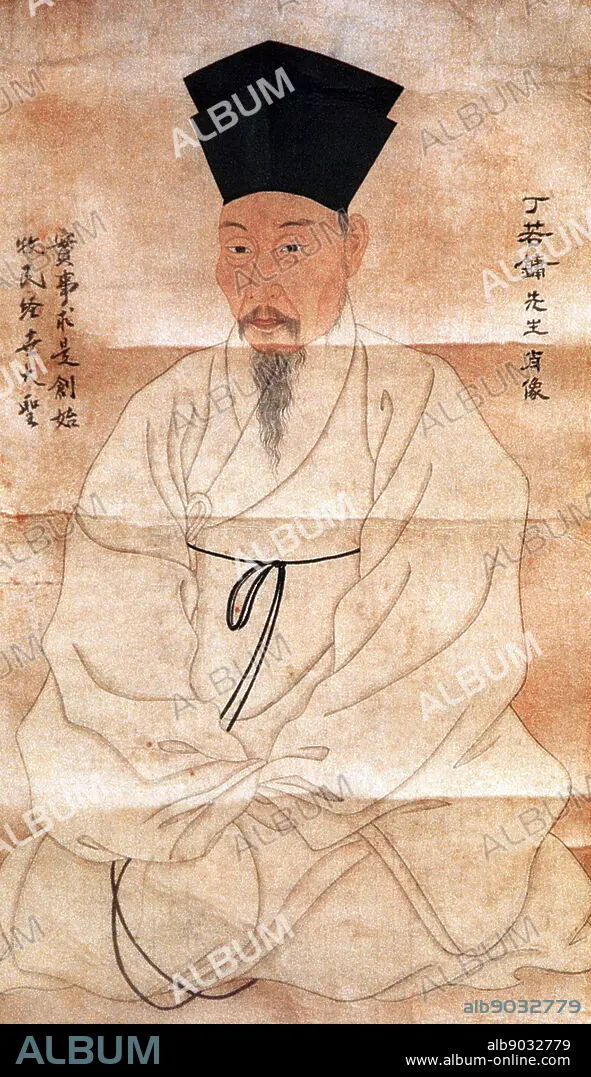 丁若鏞先生肖像
實事求是創始
牧民经大聖
ALBUM
alb9032779
ALBUM
alb9032779
www.album-online.com